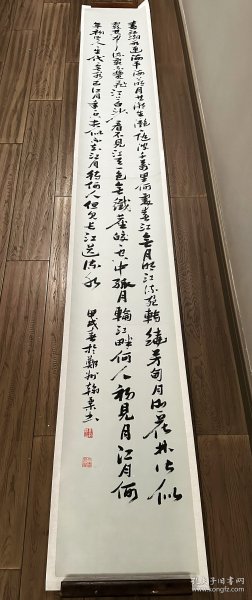 春江潮水連海平海上明月共潮生灩灩隨波千萬里何處春江無月明江流宛轉繞芳甸月照花林皆似
霰空里流霜不覺飛汀上白沙看不見江天一色無纖塵皎皎空中孤月輪江畔何人初見月江月何
年初照人人生代代無窮已江月年年只相似不知江月待何人但見長江送流水
甲戌春於鄭州
孔夫子旧书网